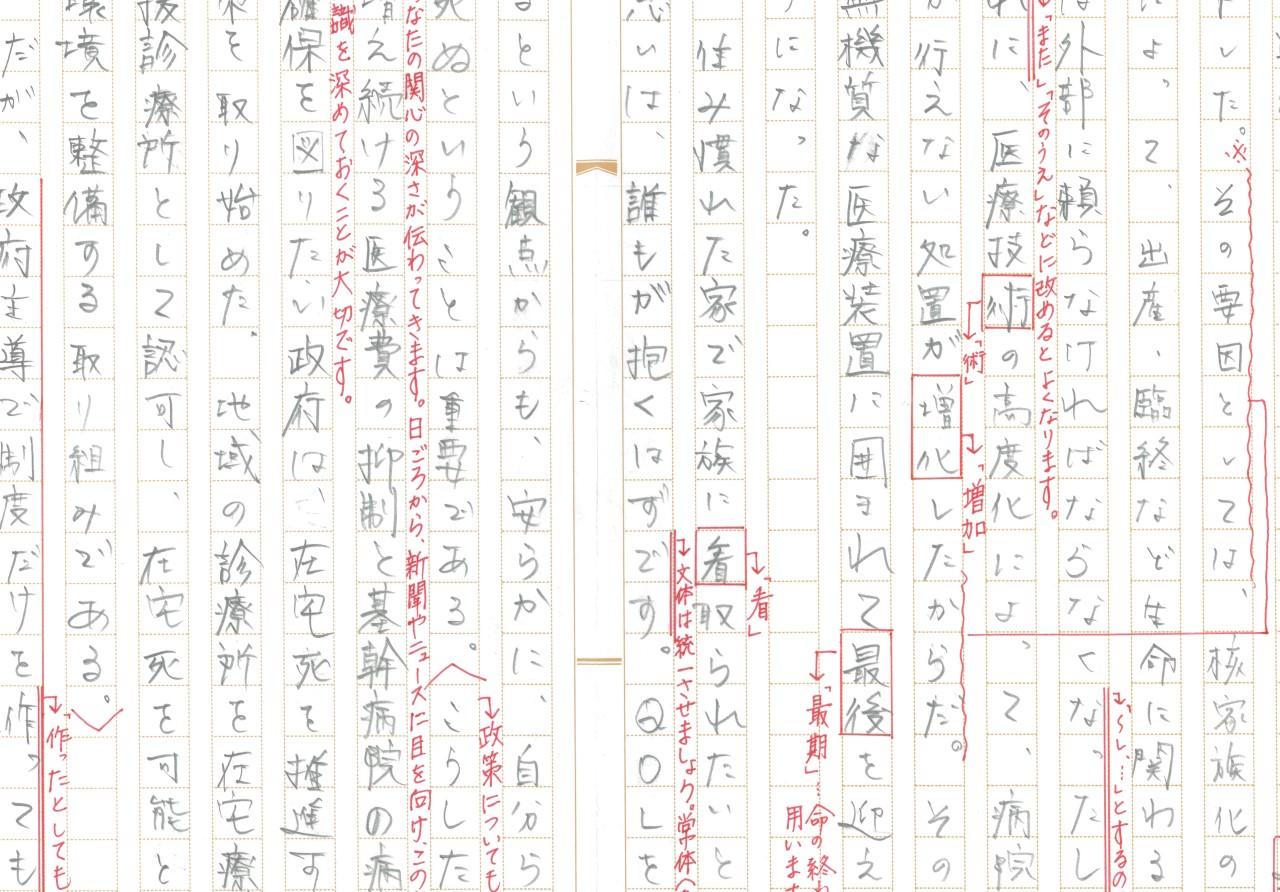 その要因としては、核家族化の
によって、出産、臨終など生命に関わる
は外部に頼らなければならなくなったし
「～し、…」とするの
「また」「そのうえ」などに改めるとよくなります。
れに、医療技術の高度化によって、病院
「術」
が行えない処置が増化したからだ。その
「増加」
無機質な医療装置に囲まれて最後を迎え
「最期」…命の終わ
用います
うになった。
住み慣れた家で家族に看取られたいと
「看」
思いは、誰もが抱くはずです。QOLを
文体は統一させましょう。常体
という観点からも、安らかに、自分ら
死ぬということは重要である。こうした
政策についても
なたの関心の深さが伝わってきます。日ごろから、新聞やニュースに目を向け、この
増え続ける医療費の抑制と基幹病院の病
識を深めておくことが大切です。
確保を図りたい政府は、在宅死を推進す
策を取り始めた。地域の診療所を在宅療
援診療所として認可し、在宅死を可能と
環境を整備する取り組みである。
「作ったとしても
だが、政府主導で制度だけを作っても